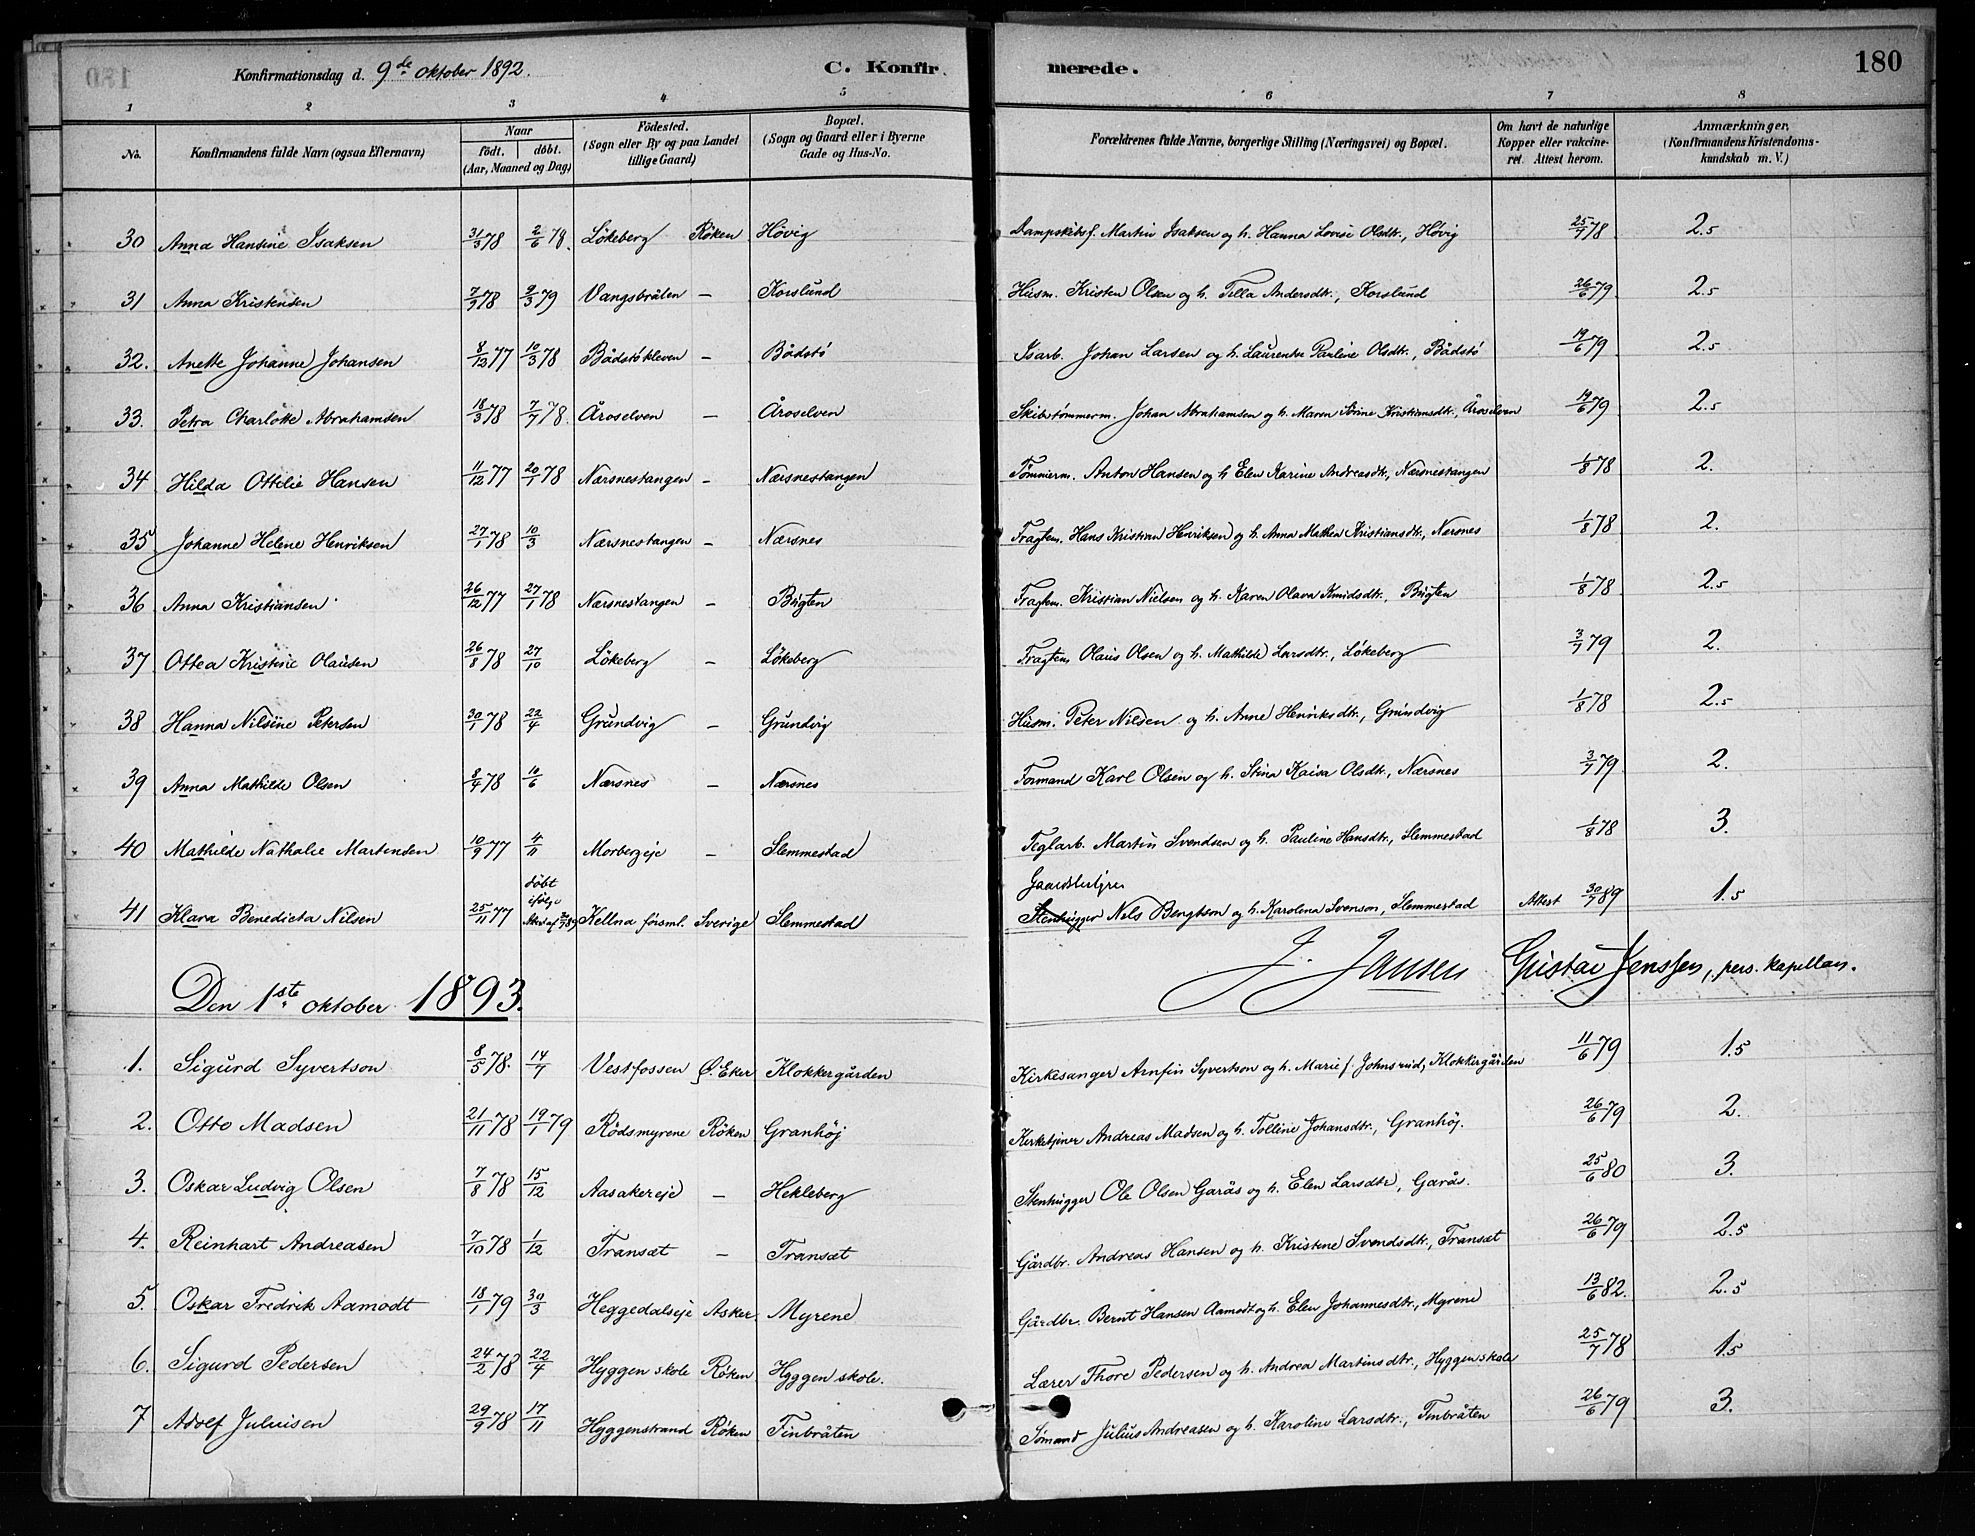 Konfirmationsdag d. 9de oktober 1892. C. Konfir- merede. 180
1 2 3 4 5 6 7 8
No. Konfirmandens fulde Navn (ogsaa Efternavn) Naar födt. döbt. (Aar, Maaned og Dag) Födested. (Sogn eller By og paa Landet tillige Gaard) Bopæl. (Sogn og Gaard eller i Byerne Gade og Hus-No. Forældrenes fulde Navne, borgerlige Stilling (Næringsvei) og Bopæl. Om havt de naturlige Kopper eller vakcineret. Attest herom. Anmærkninger. (Konfirmandens Kristendomskundskab m. V.)
30 Anna Hansine Isaksen 31/3 78 2/6 78. Lökeberg Röken Hövig Dampskibsf. Martin Isaksen og h. Hanna Lovise Olsdtr., Hövig 25/7 78 2.5
31 Anna Kristensen 7/9 78 9/3 79 Vangsbråten - Korslund Husm. Kristen Olsen og h. Tella Andersdtr., Korslund 26/6 79 2.5
32. Anette Johanne Johansen 8/12 77 10/3 78 Bådstökleven - Bådstö Isarb. Johan Larsen og h. Laurentse Pauline Olsdtr., Bådstö 19/6 79 2.5
33. Petra Charlotte Abrahamsen 18/3 78 7/7 78. Åroselven - Åroselven Skibstömmerm. Johan Abrahamsen og h. Maren Sörine Kristiansdtr., Åroselven 19/6 79 2.5
34 Hilda Ottilie Hansen 11/12 77 20/1 78 Nærsnestangen - Nærsnestangen Tömmerm. Anton Hansen og h. Elen Karine Andreasdtr., Nærsnestangen 1/8 78 2.
35 Johanne Helene Henriksen 27/1 78 10/3 Nærsnestangen - Nærsnes Fragtem. Hans Kristian Henriksen og h. Anna Mathea Kristiansdtr., Nærsnes 1/8 78 2.
36 Anna Kristiansen 26/12 77 27/1 78 Nærsnestangen - Bugten Fragtem. Kristian Nielsen og h. Karen Olava Knudsdtr., Bugten 1/8 78 2.5
37 Ottea Kristine Olausen 26/8 78 27/10 Lökeberg - Lökeberg Fragtem. Olaus Olsen og h. Mathilde Larsdtr., Lökeberg 3/7 79 2.
38 Hanna Nilsine Petersen 30/1 78 22/4 Grundvig - Grundvig Husm. Peter Nilsen og h. Anne Henriksdtr., Grundvig 1/8 78 2.5
39 Anna Mathilde Olsen 8/4 78 10/6 Nærsnes - Nærsnes Formand Karl Olsen og h. Stina Kaisa Olsdtr., Nærsnes 3/7 79 2.
40 Mathilde Nathalie Martinsen 10/9 77 4/11 Morbergeje - Slemmestad Teglarb. Martin Svendsen og h. Pauline Hansdtr., Slemmestad 1/8 78 3.
döbt ifölge Gaardsbestyrer
41 Klara Benedicta Nilsen 25/11 77 Kellna försml. Sverige Slemmestad Stenhugger Nels Bengtson og h. Karolina Svenson, Slemmestad Attest 30/7 89 1.5
J. Jansen Gustav Jenssen, pers. kapellan.
Den 1ste oktober 1893.
1. Sigurd Syvertson 8/5 78. 14/7 Vestfossen Ø. Eker Klokkergården Kirkesanger Arnfin Syvertson og h. Marie f. Johnsrud, Klokkergården 11/6 79 1.5
2. Otto Madsen 21/11 78 19/1 79 Rödsmyrene Röken Granhöj Kirketjener Andreas Madsen og h. Tolline Johansdtr., Granhöj. 26/6 79 2.
3. Oskar Ludvig Olsen 7/8 78 15/12 Aasakereje - Hekleberg Stenhugger Ole Olsen Garås og h. Elen Larsdtr, Garås. 25/6 80 3.
4. Reinhart Andreasen 7/10 78 1/12 Transæt - Transæt Gårdbr. Andreas Hansen og h. Kristene Svendsdtr., Transæt 26/6 79 2.5
5. Oskar Fredrik Aamodt 18/1 79 30/3 Heggedalseje Asker Myrene Gårdbr. Bernt Hansen Aamodt og h. Elen Johannesdtr., Myrene 13/6 82. 2.5
6. Sigurd Pedersen 24/2 78 22/4 Hyggen skole Röken Hyggen skole. Lærer Thore Pedersen og h. Andrea Martinsdtr., Hyggen skole 25/7 78 1.5
7 Adolf Juluisen 29/9 78 17/11 Hyggenstrand Röken Tinbråten Sömand Julius Andreasen og h. Karoline Larsdtr., Tinbråten 26/6 79 3.